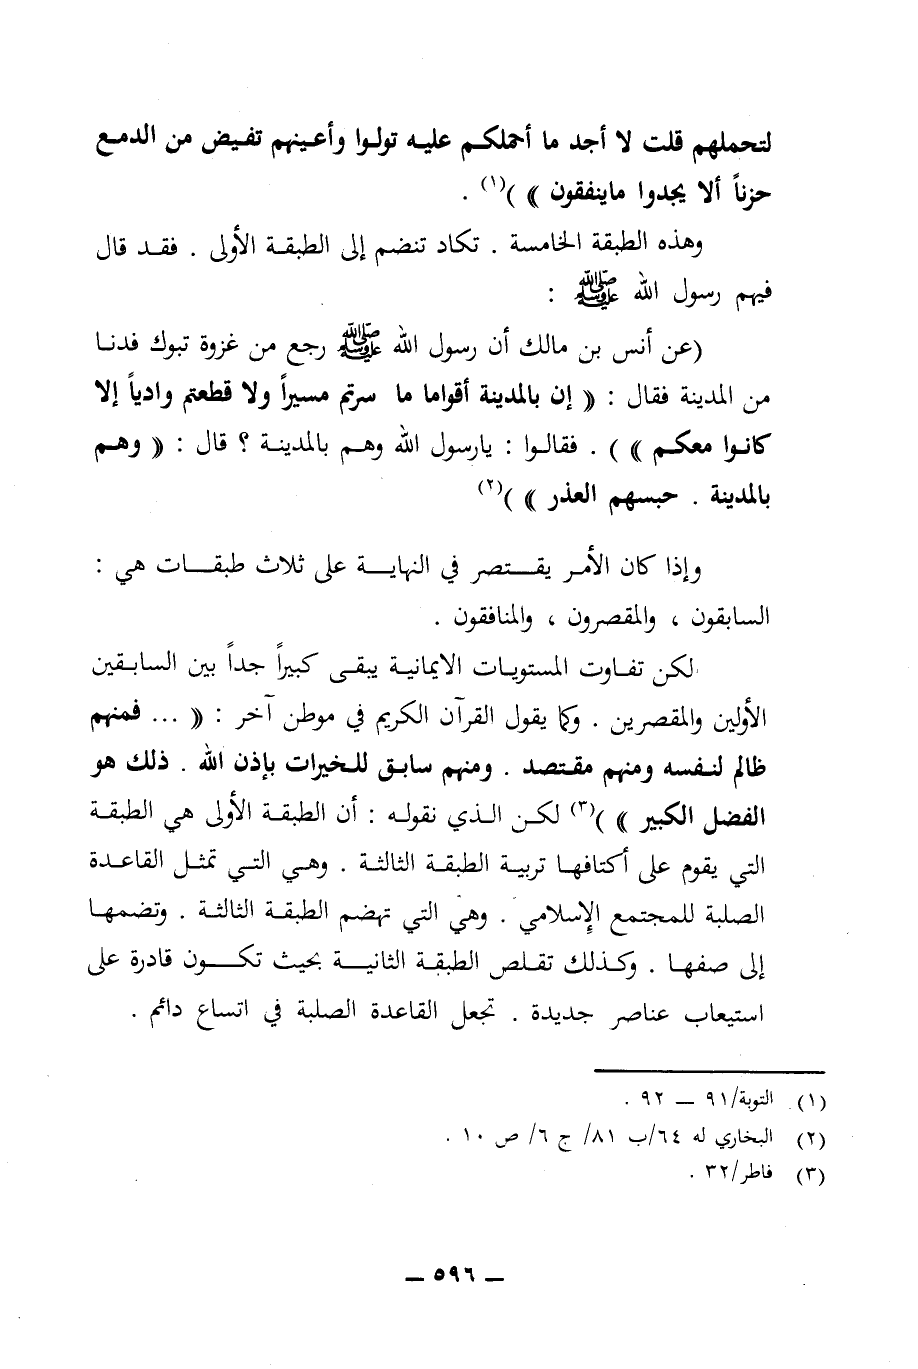 لتحملهم قلت لا أجد ما أحملكم عليه تولوا وأعينهم تفيض من الدمع
حزناً ألا يجدوا ماينفقون ﴾ )(١) .
وهذه الطبقة الخامسة . تكاد تنضم إلى الطبقة الأولى . فقد قال
فيهم رسول الله ﷺ :
(عن أنس بن مالك أن رسول الله ﷺ رجع من غزوة تبوك فدنا
من المدينة فقال : « إن بالمدينة أقواما ما سرتم مسيراً ولا قطعتم وادياً إلا
كانوا معكم » ) . فقالوا : يارسول الله وهم بالمدينة ؟ قال : « وهم
بالمدينة . حبسهم العذر » )(٢)
وإذا كان الأمر يقتصر في النهاية على ثلاث طبقات هي :
السابقون ، والمقصرون ، والمنافقون .
لكن تفاوت المستويات الايمانية يبقى كبيراً جداً بين السابقين
الأولين والمقصرين . وكما يقول القرآن الكريم في موطن آخر : ﴿ ... فمنهم
ظالم لنفسه ومنهم مقتصد . ومنهم سابق للخيرات بإذن الله . ذلك هو
الفضل الكبير ﴾ )(٣) لكن الذي نقوله : أن الطبقة الأولى هي الطبقة
التي يقوم على أكتافها تربية الطبقة الثالثة . وهي التي تمثل القاعدة
الصلبة للمجتمع الإسلامي . وهي التي تهضم الطبقة الثالثة . وتضمها
إلى صفها . وكذلك تقلص الطبقة الثانية بحيث تكون قادرة على
استيعاب عناصر جديدة . تجعل القاعدة الصلبة في اتساع دائم .
(١) التوبة/٩١ — ٩٢ .
(٢) البخاري له ٦٤/ب ٨١/ ج ٦/ ص ١٠ .
(٣) فاطر/٣٢ .
— ٥٩٦ —